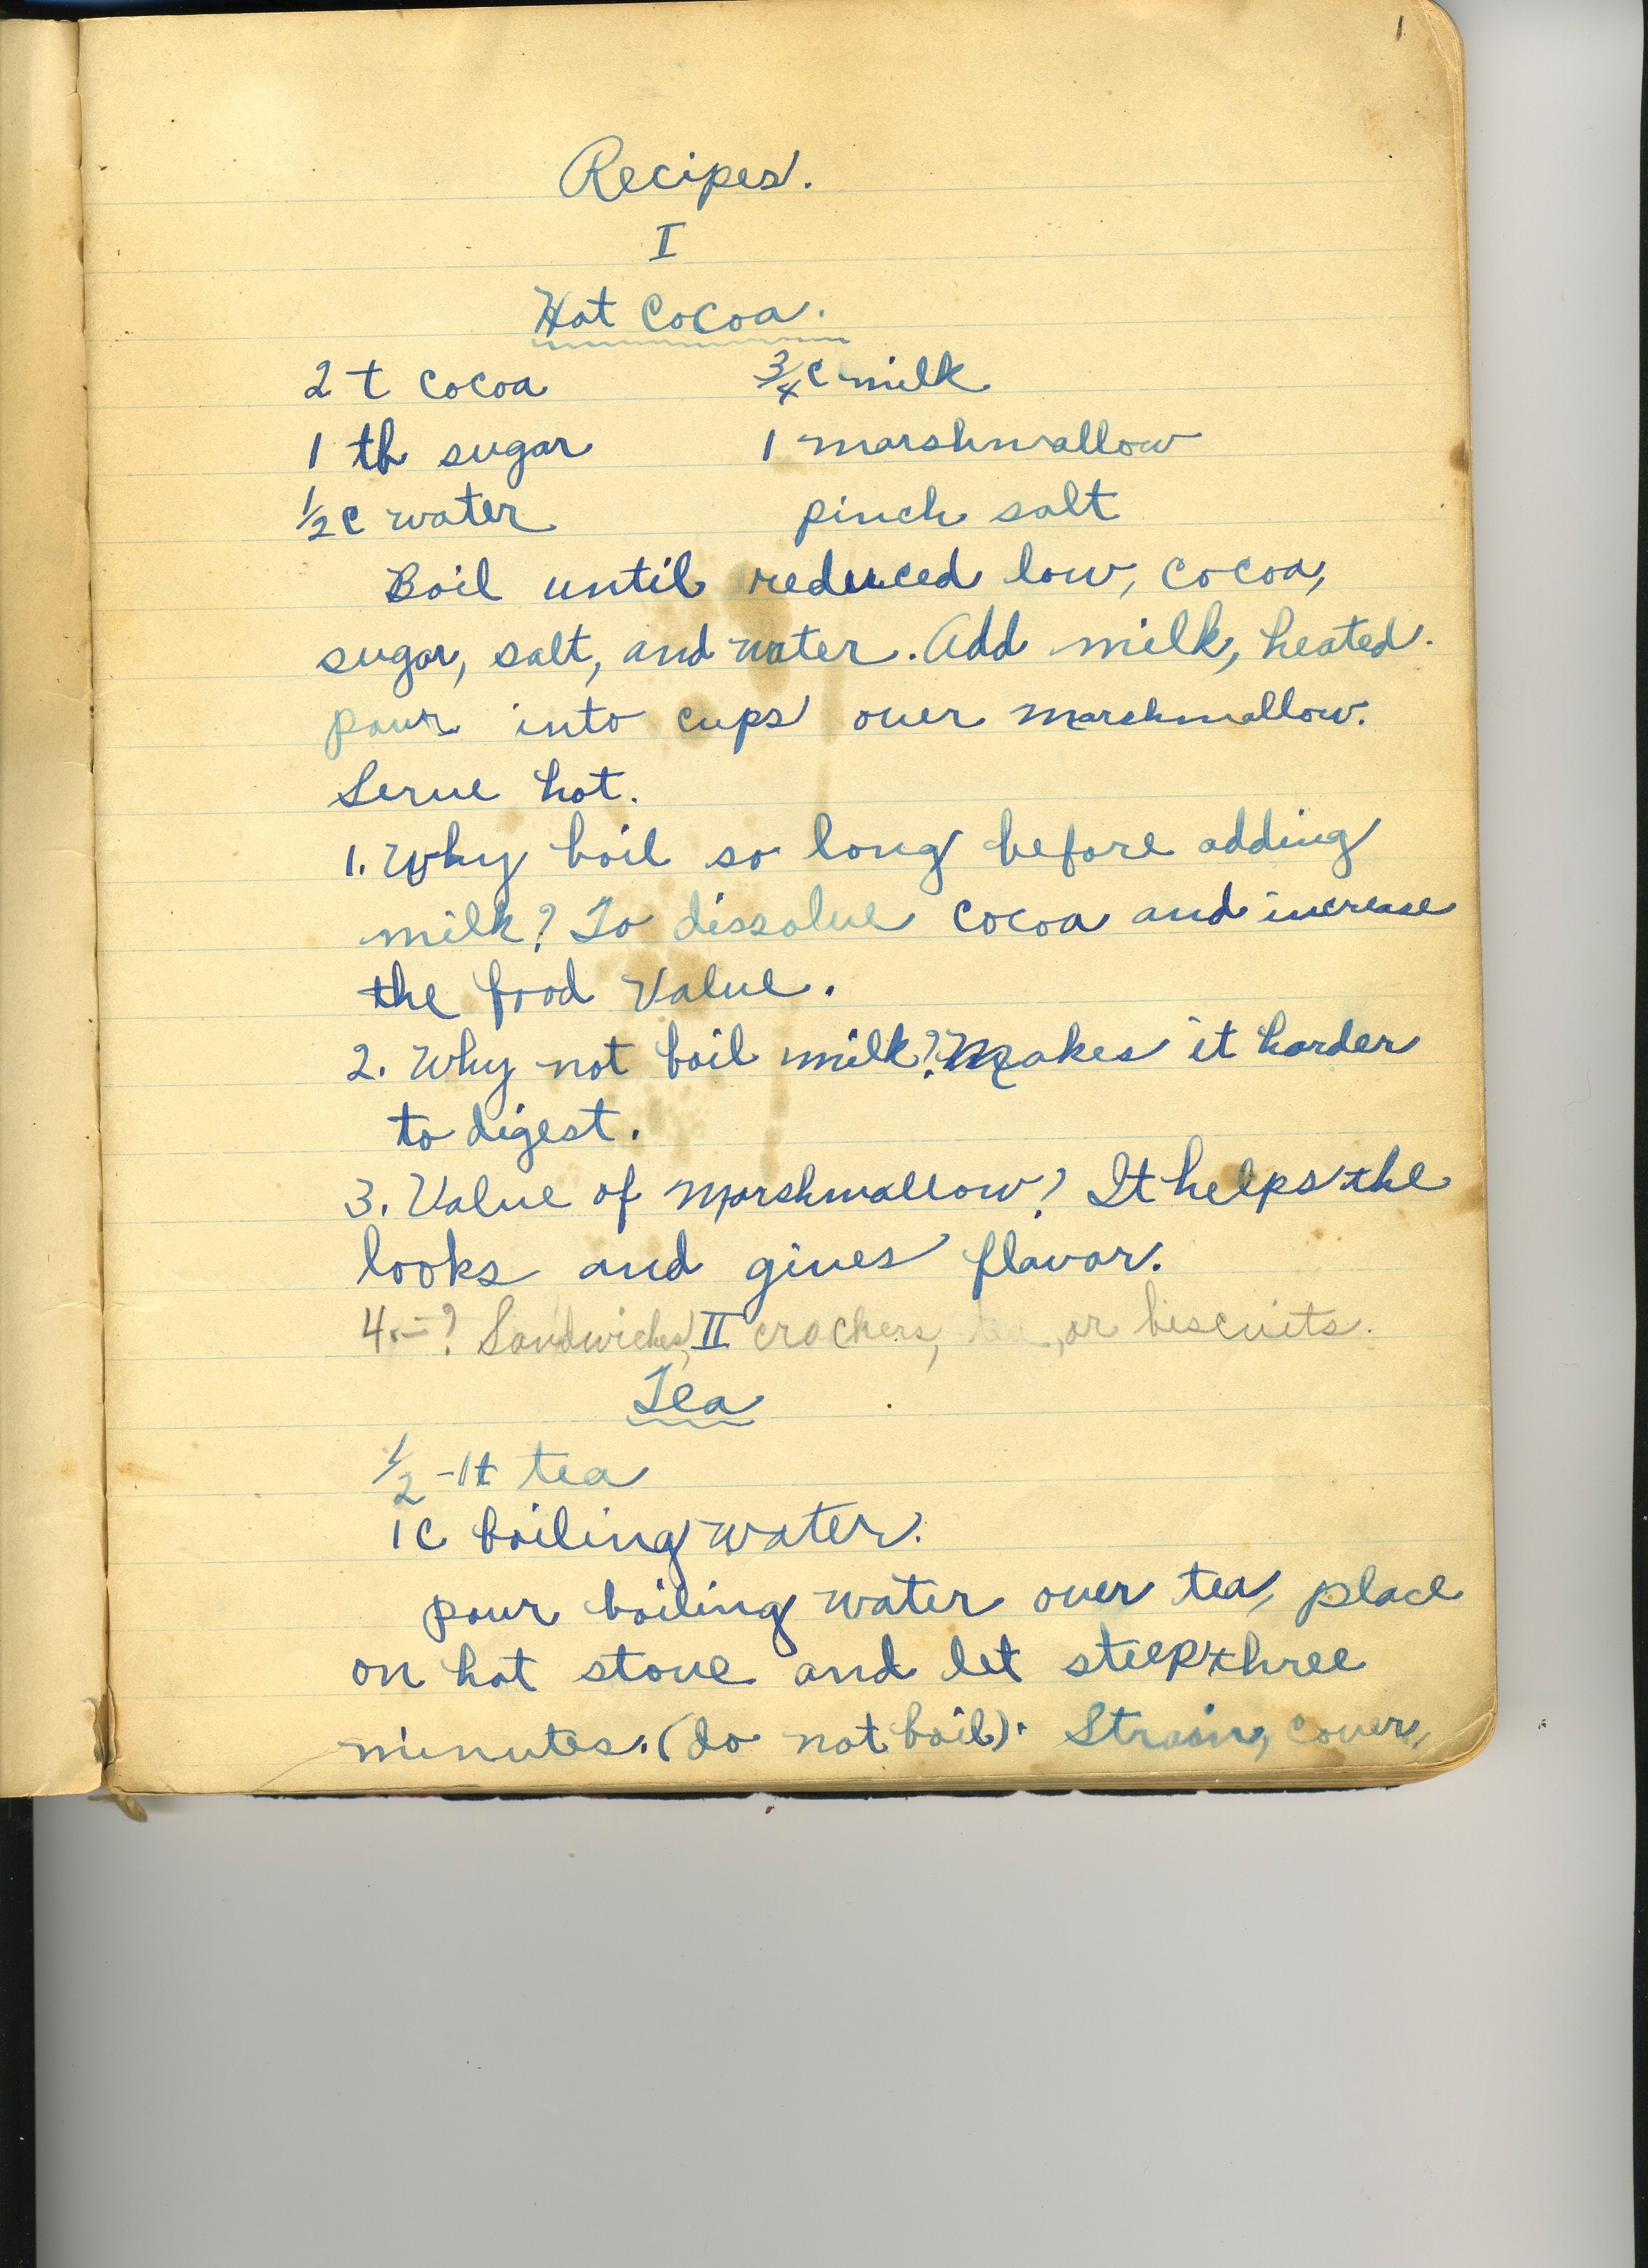 1
Recipes.
I
Hot Cocoa.
2 t cocoa 3/4 c milk
1 tb sugar 1 marshmallow
1/2 c water pinch salt
Boil until reduced low, cocoa,
sugar, salt, and water. Add milk, heated.
pour into cups over marshmallow.
Serve hot.
1. Why boil so long before adding
milk? To dissolve cocoa and increase
the food value.
2. Why not boil milk? Makes it harder
to digest.
3. Value of marshmallow? It helps the
looks and gives flavor.
4.-? Sandwiches, crackers, or biscuits.
II
Tea
1/2 - 1 t tea
1 c boiling water.
pour boiling water over tea, place
on hot stove and let steep three
minutes. (do not boil). Strain, cover,